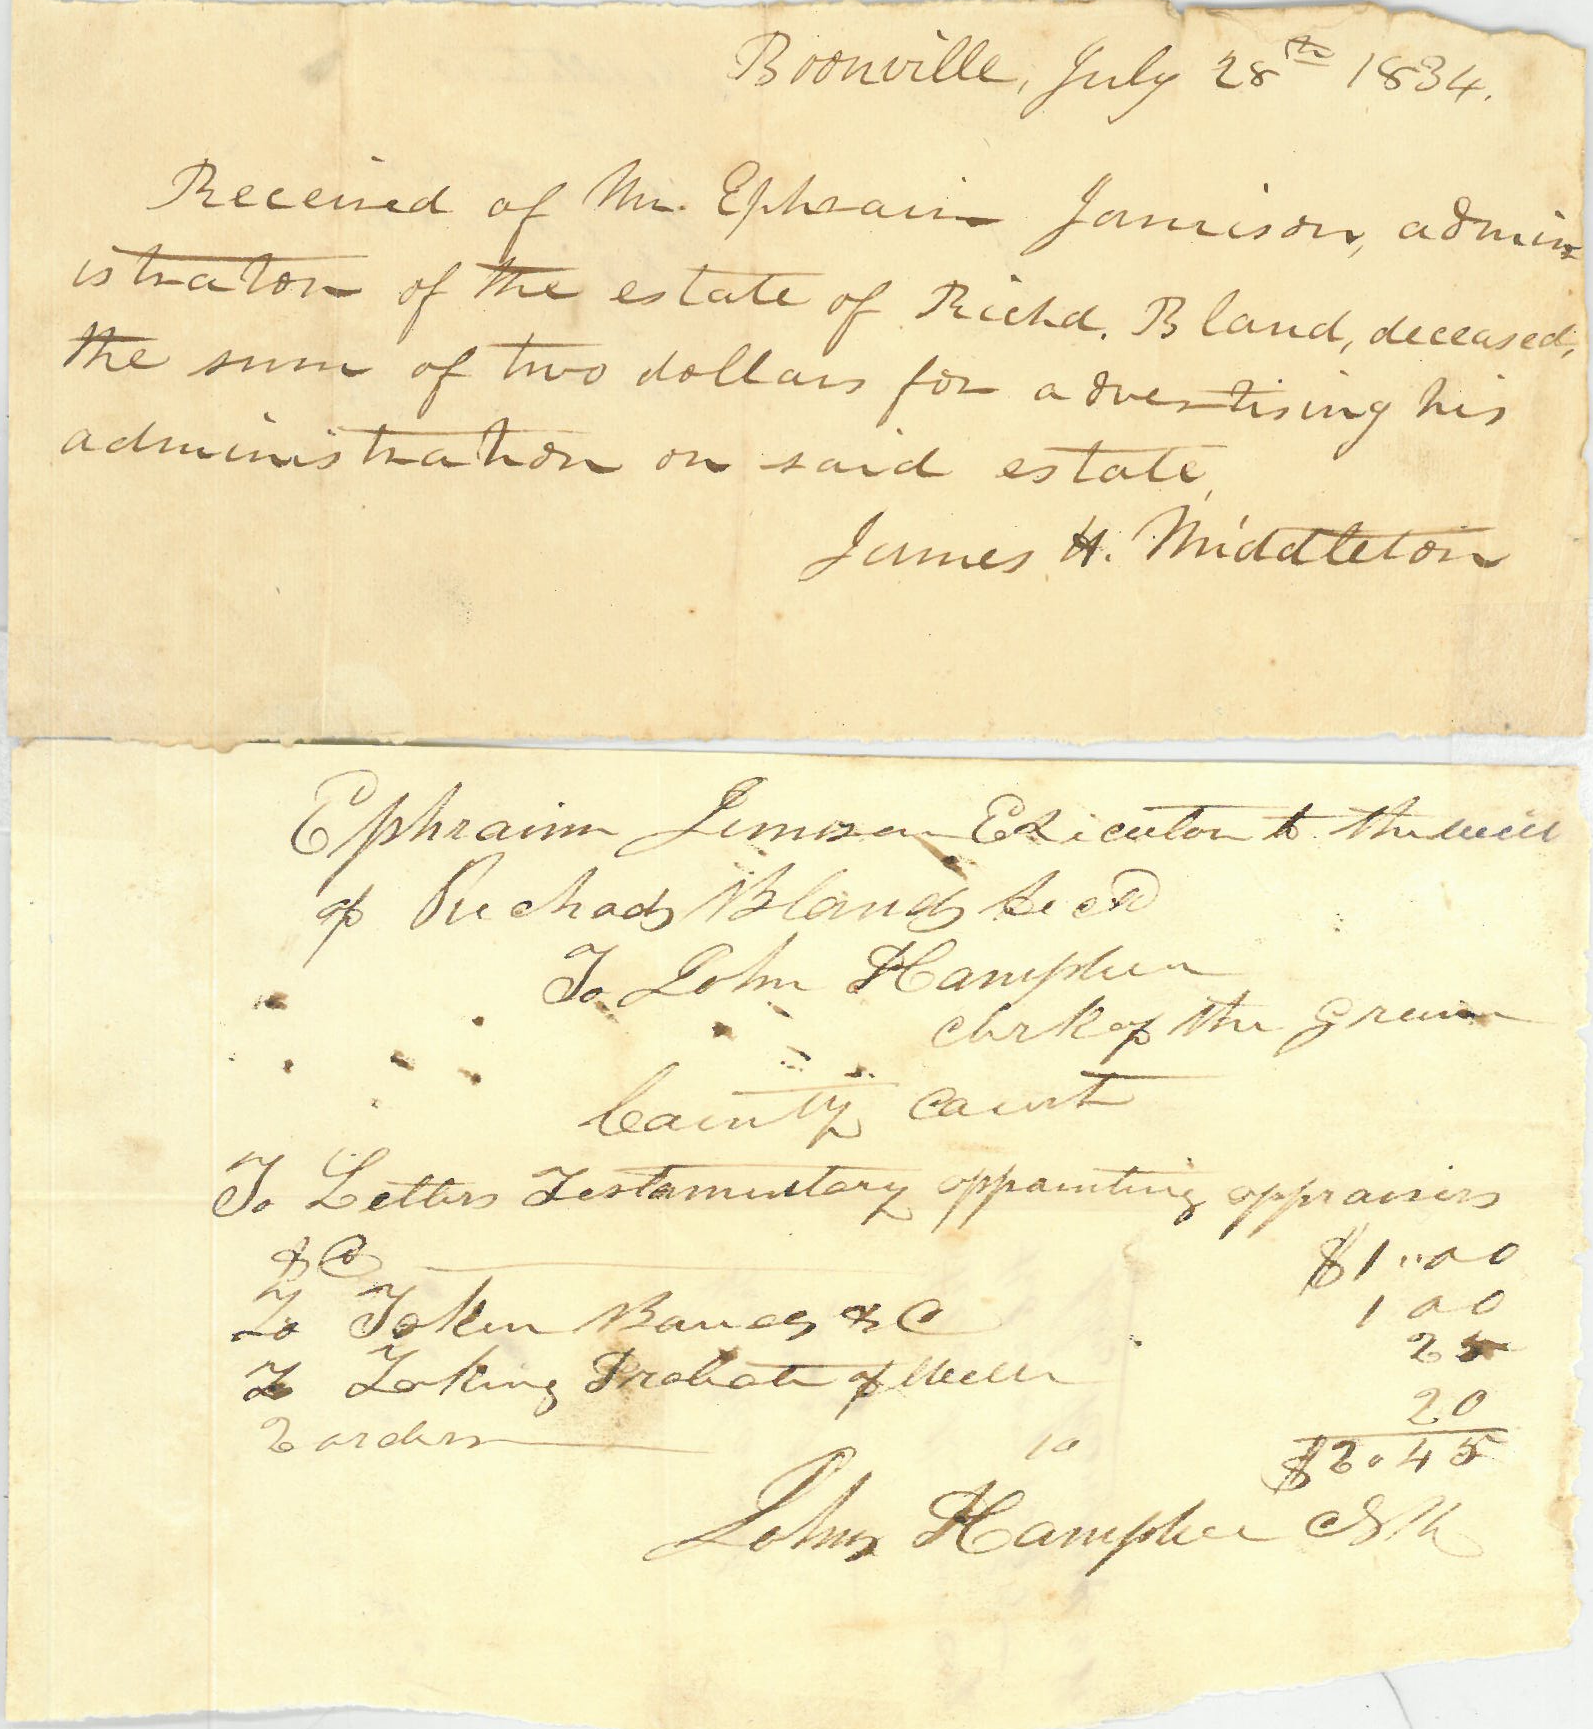 Boonville, July 28th 1834.
Received of Mr. Ephraim Jamison, admin-
istrator of the estate of Richd. Bland, deceased,
the sum of two dollars for advertising his
administration on said estate.
James H. Middleton
Ephraim Jimison Exicutor to the will
of Richads Blands decd
To John Hamphier
clerk of the Green
County Court
To Letters Testamentary appainting appraisers
&C $1..00
To Taken Bands &C 1 00
To Taking Probate of Will 25
2 orders 10 20
$2.45
John Hamphier Clk